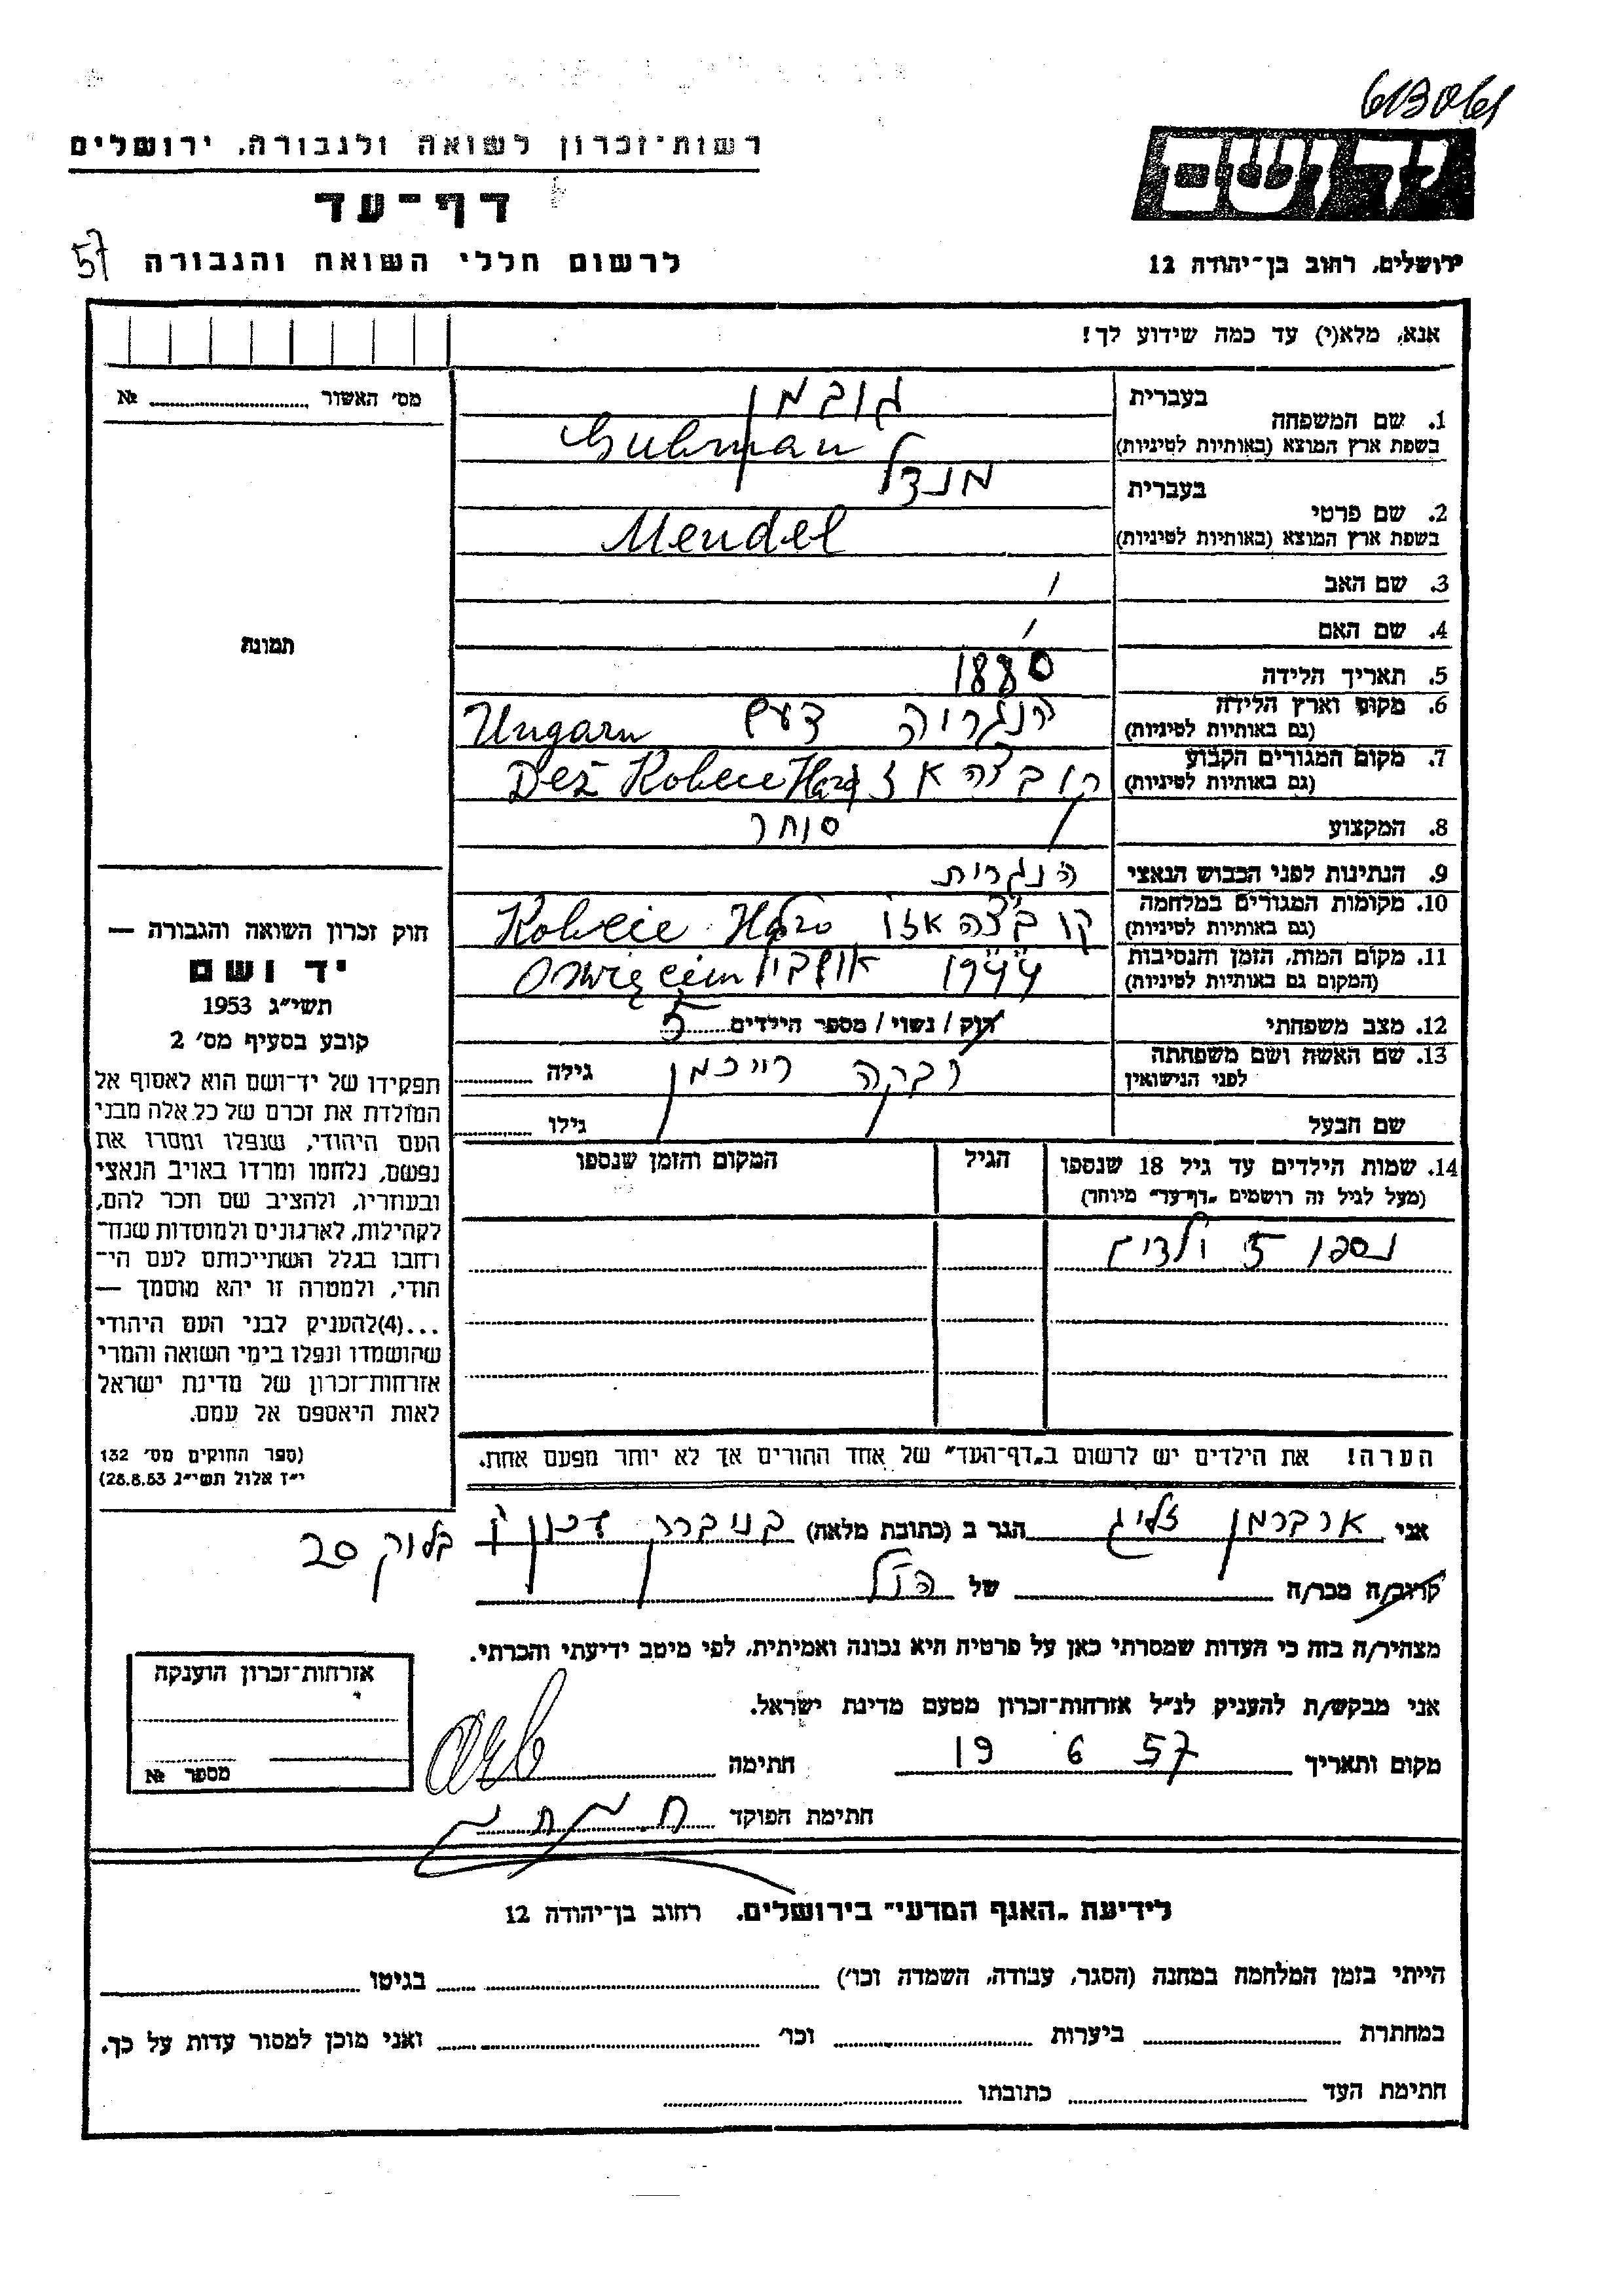 613061
רשות־זכרון לשואה ולגבורה, ירושלים
יד ושם
דף־עד
57 לרשום חללי השואה והגבורה
ירושלים, רחוב בן־יהודה 12
אנא, מלא(י) עד כמה שידוע לך!
מס׳ האשור №
תמונה
1. שם המשפחה
בעברית
גובמן
בשפת ארץ המוצא (באותיות לטיניות)
Gubman
2. שם פרטי
בעברית
מנדל
בשפת ארץ המוצא (באותיות לטיניות)
Mendel
3. שם האב /
4. שם האם /
5. תאריך הלידה 1880
6. מקום וארץ הלידה
(גם באותיות לטיניות)
הנגריה דעש Ungarn
7. מקום המגורים הקבוע
(גם באותיות לטיניות)
Dez
8. המקצוע סוחר
9. הנתינות לפני הכבוש הנאצי הנגרית
10. מקומות המגורים במלחמה
(גם באותיות לטיניות)
11. מקום המות, הזמן והנסיבות
(המקום גם באותיות לטיניות)
1944 Oswięcim
12. מצב משפחתי רוק / נשוי / מספר הילדים 5
13. שם האשה ושם משפחתה
לפני הנישואין
רבקה רייכמן גילה
שם הבעל גילו
14. שמות הילדים עד גיל 18 שנספו
(מעל לגיל זה רושמים „דף־עד״ מיוחד)
הגיל
המקום והזמן שנספו
נספו 5 ילדים
הערה! את הילדים יש לרשום ב„דף־העד״ של אחד ההורים אך לא יותר מפעם אחת.
חוק זכרון השואה והגבורה —
יד ושם
תשי״ג 1953
קובע בסעיף מס׳ 2
תפקידו של יד־ושם הוא לאסוף אל
המולדת את זכרם של כל אלה מבני
העם היהודי, שנפלו ומסרו את
נפשם, נלחמו ומרדו באויב הנאצי
ובעוזריו, ולהציב שם וזכר להם,
לקהילות, לארגונים ולמוסדות שנח־
רחבו בגלל השתייכותם לעם הי־
הודי, ולמטרה זו יהא מוסמך —
...(4)להעניק לבני העם היהודי
שהושמדו ונפלו בימי השואה והמרי
אזרחות־זכרון של מדינת ישראל
לאות היאספם אל עמם.
(ספר החוקים מס׳ 132
י״ז אלול תשי״ג 28.8.53)
אני ארברמן זליג הגר ב (כתובת מלאה) בני ברק
בלוק 20
קרוב/ה מכר/ה של הנ״ל
מצהיר/ה בזה כי העדות שמסרתי כאן על פרטיה היא נכונה ואמיתית, לפי מיטב ידיעתי והכרתי.
אני מבקש/ת להעניק לנ״ל אזרחות־זכרון מטעם מדינת ישראל.
מקום ותאריך 19 6 57 חתימה
חתימת הפוקד
אזרחות־זכרון הוענקה
מספר №
לידיעת „האגף המדעי״ בירושלים, רחוב בן־יהודה 12
הייתי בזמן המלחמה במחנה (הסגר, עבודה, השמדה וכו׳) בגיטו
במחתרת ביערות וכו׳ ואני מוכן למסור עדות על כך.
חתימת העד כתובתו